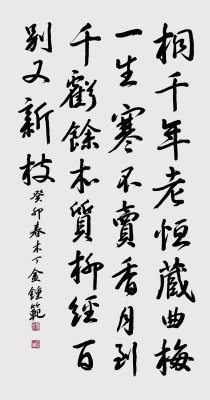 桐千年老恒藏曲梅
一生寒不賣香月到
千虧餘本質柳經百
別又新枝
癸卯春木丁金鍾範